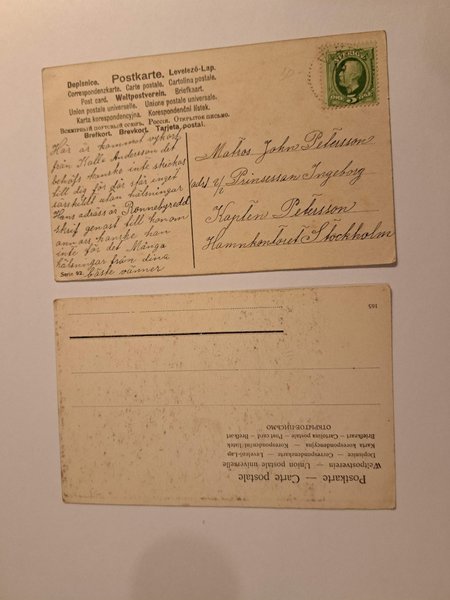 Dopisnice. Postkarte. Levelező-Lap.
Correspondenzkarte. Carte postale. Cartolina postale.
Post card. Weltpostverein. Briefkaart.
Union postale universelle. Unione postale universale.
Karta korespondencyjna. Korespondenční listek.
Всемирный почтовый союзъ. Россія. Открытое письмо.
Brefkort. Brevkort. Tarjeta postal.
Här är kommet vykort
från Kalle Andersson det
behöfs kanske inte skickas
till dig för där står inget
särskilt utan hälsningar
Hans adress är Ronnebyredd
skrif genast till honom
annars kanske han
inte får det Många
hälsningar från dina
Bäste vänner
Serie 92.
SVERIGE
5
Matros John Petersson
adr. Prinsessan Ingeborg
Kapten Petersson
Hamnkontoret Stockholm
Postkarte — Carte postale
Weltpostverein — Union postale universelle
Dopisnice — Correspondenzkarte — Levelező-Lap
Karta korespondencyjna — Korespondenční lístek
Briefkaart — Cartolina postale — Post card — Brefkort
ОТКРЫТОЕ ПИСЬМО
165